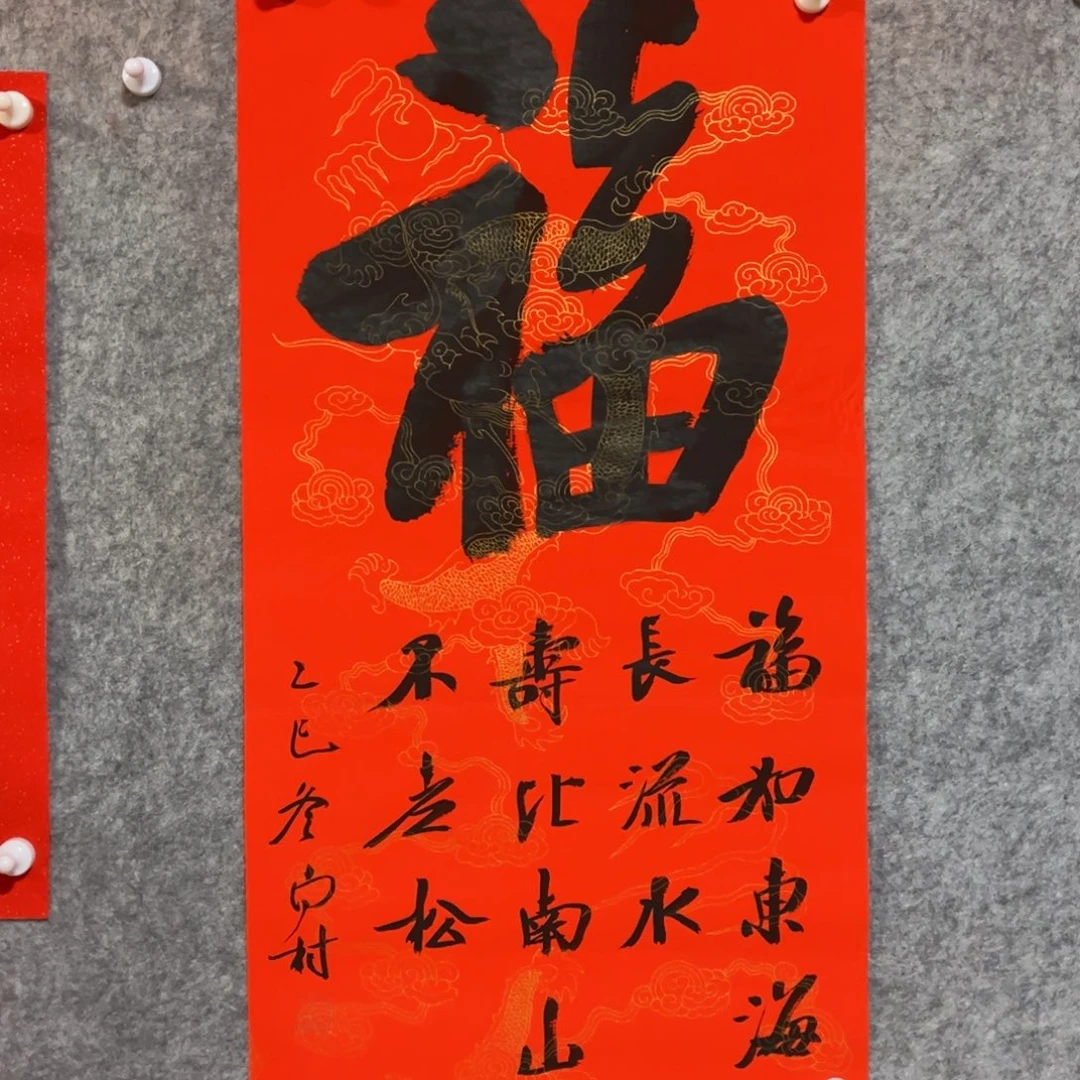 福
福如東海
長流水
壽比南山
不老松
乙巳冬
村